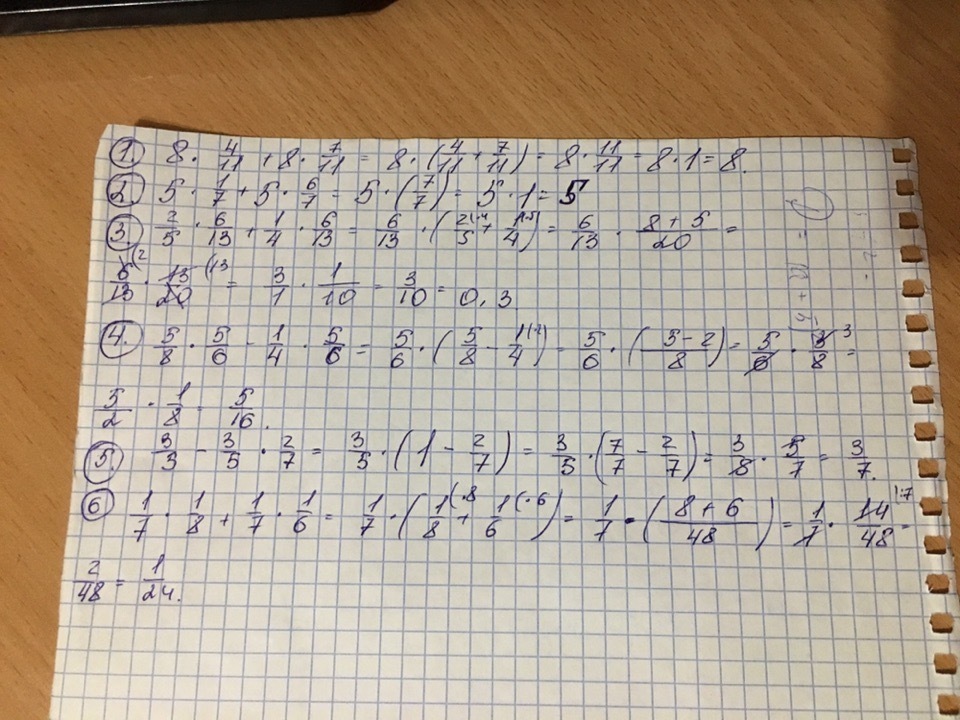 1. 8 · 4/11 + 8 · 7/11 = 8 · (4/11 + 7/11) = 8 · 11/11 = 8 · 1 = 8.
2. 5 · 1/7 + 5 · 6/7 = 5 · (7/7) = 5 · 1 = 5
3. 2/5 · 6/13 + 1/4 · 6/13 = 6/13 · (2(·4/5 + 1(·5/4) = 6/13 · (8 + 5)/20 =
6(2/13 · 13(13/20 = 3/1 · 1/10 = 3/10 = 0,3
4. 5/8 · 5/6 - 1/4 · 5/6 = 5/6 · (5/8 - 1(·2/4) = 5/6 · ((5 - 2)/8) = 5/6 · 3/8 3 =
5/2 · 1/8 = 5/16.
5. 3/3 - 3/5 · 2/7 = 3/5 · (1 - 2/7) = 3/5 · (7/7 - 2/7) = 3/8 · 5/7 = 3/7.
6 1/7 · 1/8 + 1/7 · 1/6 = 1/7 · (1(·8/8 + 1(·6/6) = 1/7 · ((8 + 6)/48) = 1/7 · 14(·7/48 =
2/48 = 1/24.